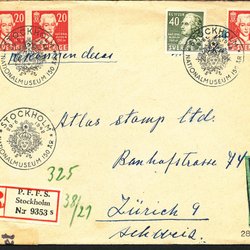 20 20 40 
SVERIGE SVERIGE
STOCKHOLM
NATIONALMUSEUM 150 ÅR
Rekommenderas
STOCKHOLM
NATIONALMUSEUM 150 ÅR
Atlas Stamp Ltd.
Bahnhofstrasse 74
325
P.F.F.S.
Stockholm
Nr 9353 s
38/21
Zürich 9
Schweiz.